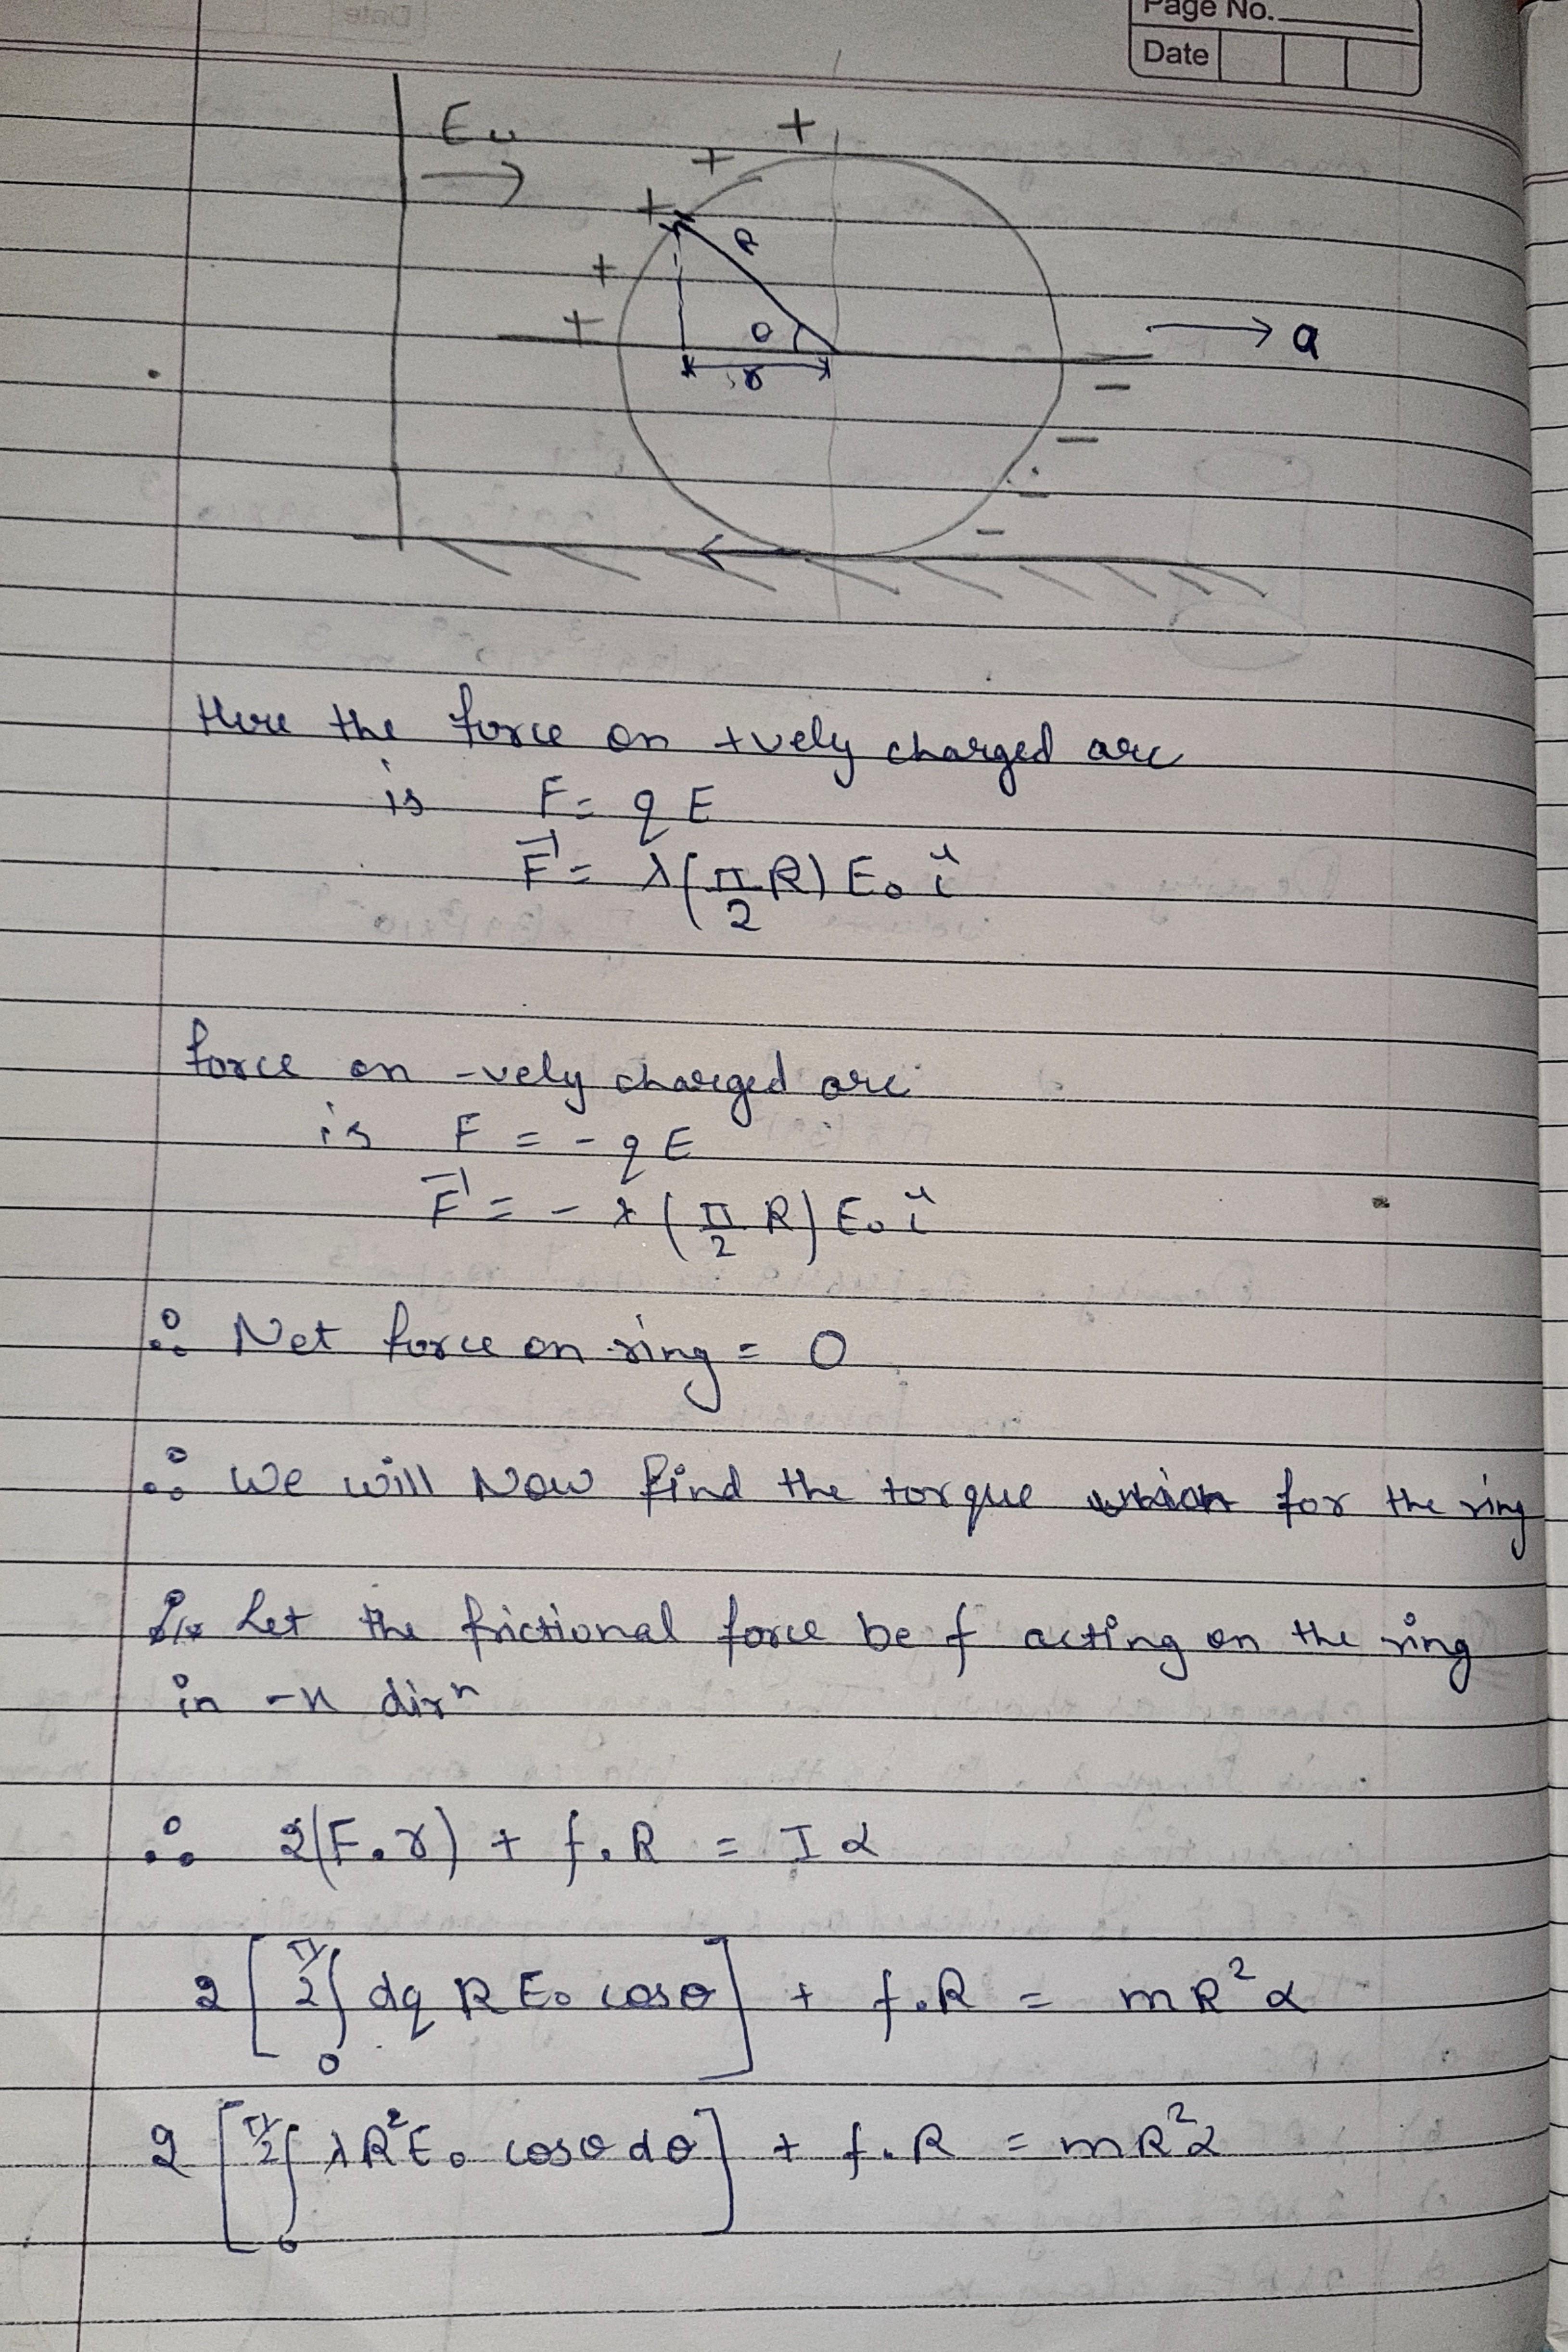 Page No.
Date
E₀
+
+
+
+
+
R
θ
r
→ a
−
−
−
−
Here the force on +vely charged arc
is F = qE
F⃗ = λ(π/2 R) E₀ î
force on -vely charged arc
is F = -qE
F⃗ = -λ(π/2 R) E₀ î
∴ Net force on ring = 0
∴ We will Now find the torque for the ring
Let the frictional force be f acting on the ring
in -x dirⁿ
∴ 2(F.r) + f.R = Iα
2[∫₀^π/2 dq R E₀ cosθ] + f.R = mR²α
2[∫₀^π/2 λR²E₀ cosθ dθ] + f.R = mR²α